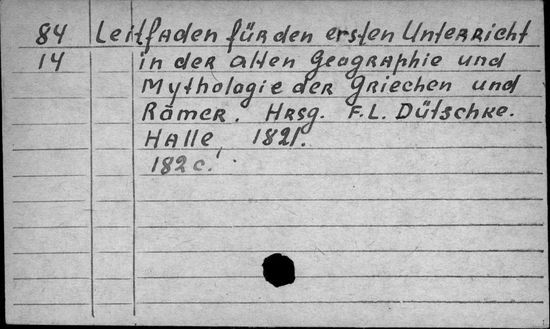 84 Leitfaden für den ersten Unterricht
14 in der alten Geographie und
Mythologie der Griechen und
Römer. Hrsg. F. L. Dütschke.
Halle, 1821.
182 c.